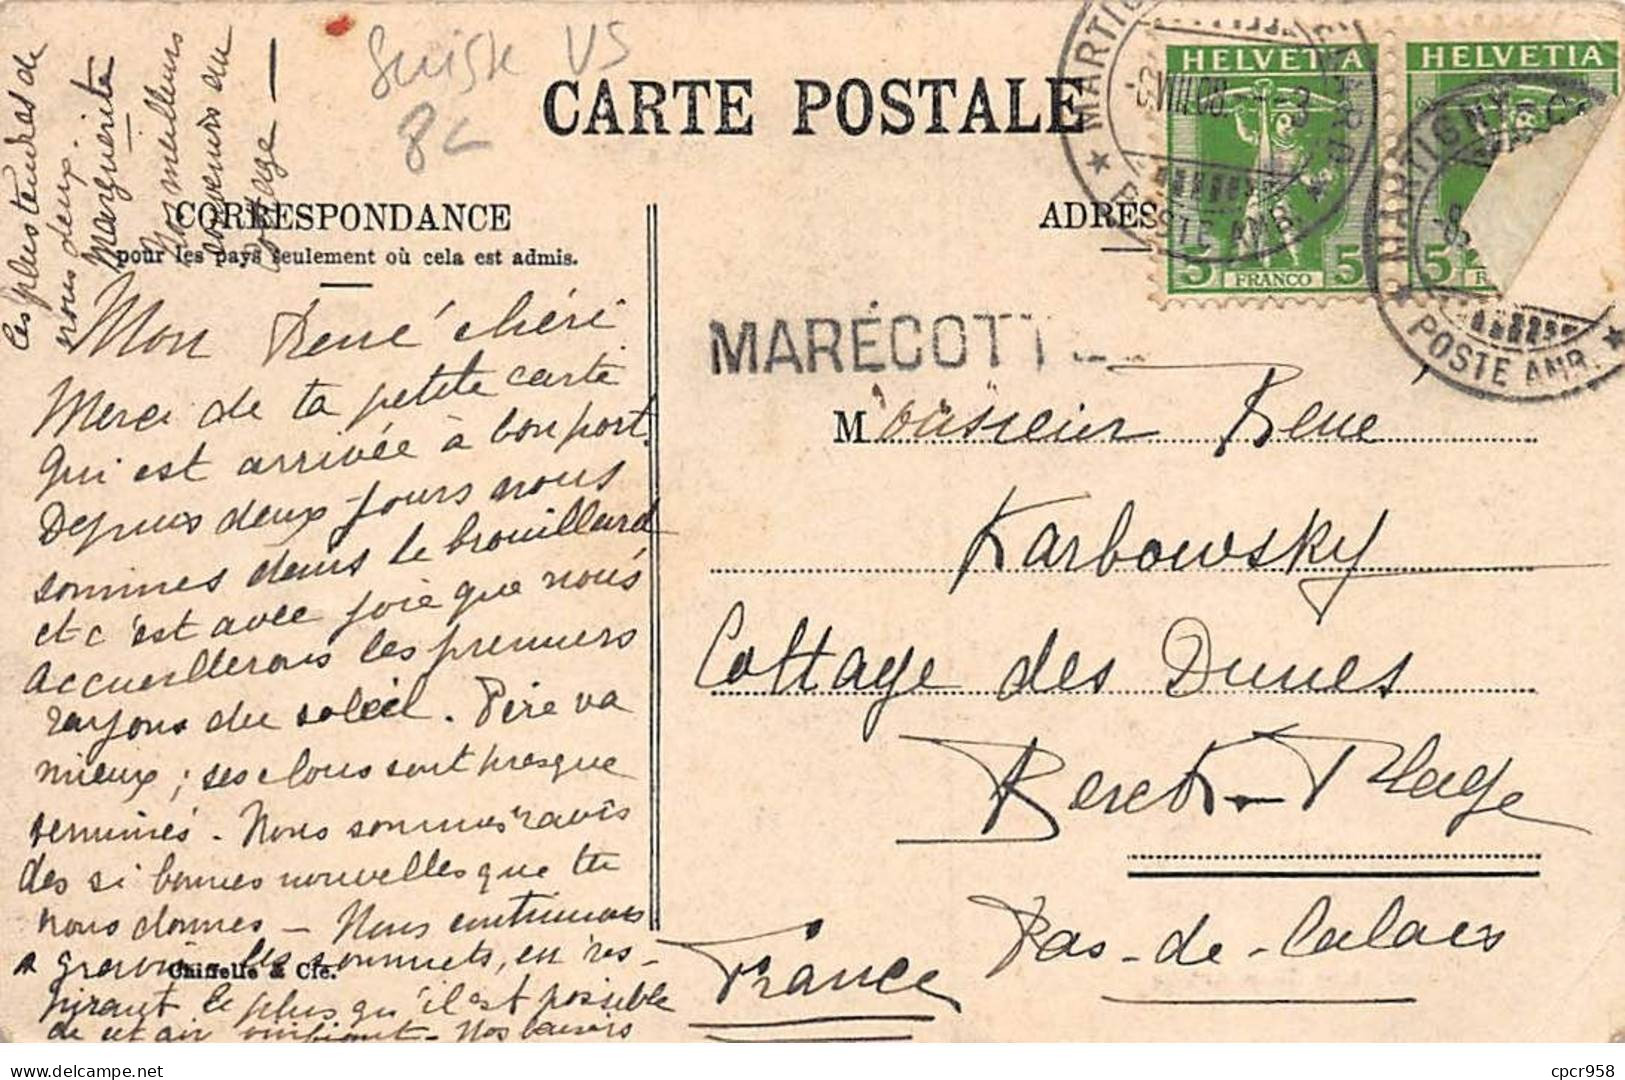 Suisse VS
8c
CARTE POSTALE
CORRESPONDANCE
pour les pays seulement où cela est admis.
ADRES
HELVETIA
5 FRANCO 5
HELVETIA
5
MARTIGNY
POSTE AMB.
MARTIGNY
POSTE AMB.
MARÉCOTT
Mon René chéri
Merci de ta petite carte
qui est arrivée à bon port.
Depuis deux jours nous
sommes dans le brouillard
et c'est avec joie que nous
accueillerons les premiers
rayons du soleil. Père va
mieux ; ses clous sont presque
terminés - Nous sommes ravis
des si bonnes nouvelles que tu
nous donnes - Nous continuons
a gravir les sommets, en res-
pirant le plus qu'il est possible
de cet air vivifiant - Nos baisers
les plus tendres de
nous deux.
Marguerite
Nos meilleurs
souvenirs au
cottage -
Chiffelle & Cie.
Monsieur René
Karbowsky
Cottage des Dunes
Berck-Plage
Pas-de-Calais
France
cpcr958